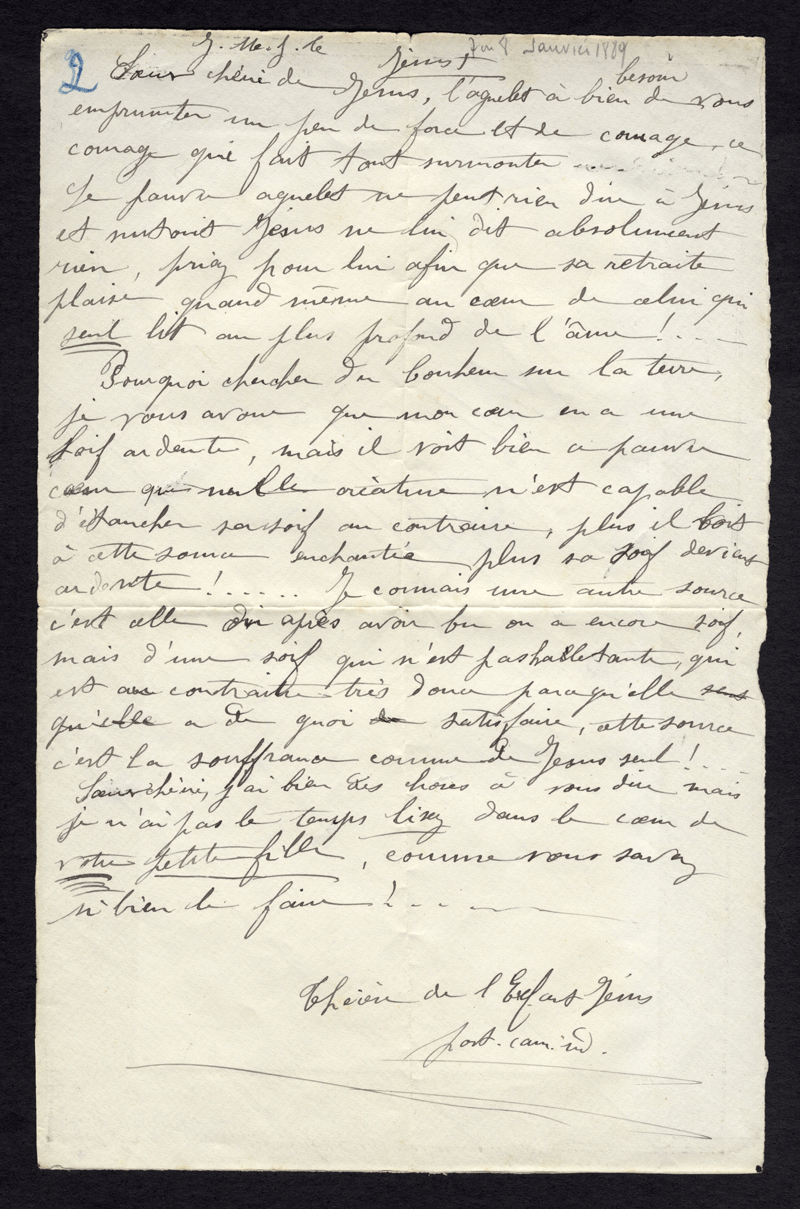 J. M. J. T. Jésus † 7 ou 8 Janvier 1889
2
Sœur chérie de Jésus, l'agnelet à bien besoin de vous
emprunter un peu de force et de courage, ce
courage qui fait tout surmonter ......
Le pauvre agnelet ne peut rien dire à Jésus
et surtout Jésus ne lui dit absolument
rien, priez pour lui afin que sa retraite
plaise quand même au cœur de celui qui
seul lit au plus profond de l'âme !....
Pourquoi chercher du bonheur sur la terre,
je vous avoue que mon cœur en a une
soif ardente, mais il voit bien ce pauvre
cœur que nulle créature n'est capable
d'étancher sa soif au contraire, plus il boit
à cette source enchantée plus sa soif devient
ardente !...... Je connais une autre source
c'est celle où après avoir bu on a encore soif,
mais d'une soif qui n'est pas haletante, qui
est au contraire très douce parcequ'elle
qu'elle a de quoi de satisfaire, cette source
c'est la souffrance connue de Jésus seul !....
Sœur chérie, j'ai bien des choses à vous dire mais
je n'ai pas le temps lisez dans le cœur de
votre petite fille, comme vous savez
si bien le faire !....
Thérèse de l'Enfant Jésus
post. carm. ind.